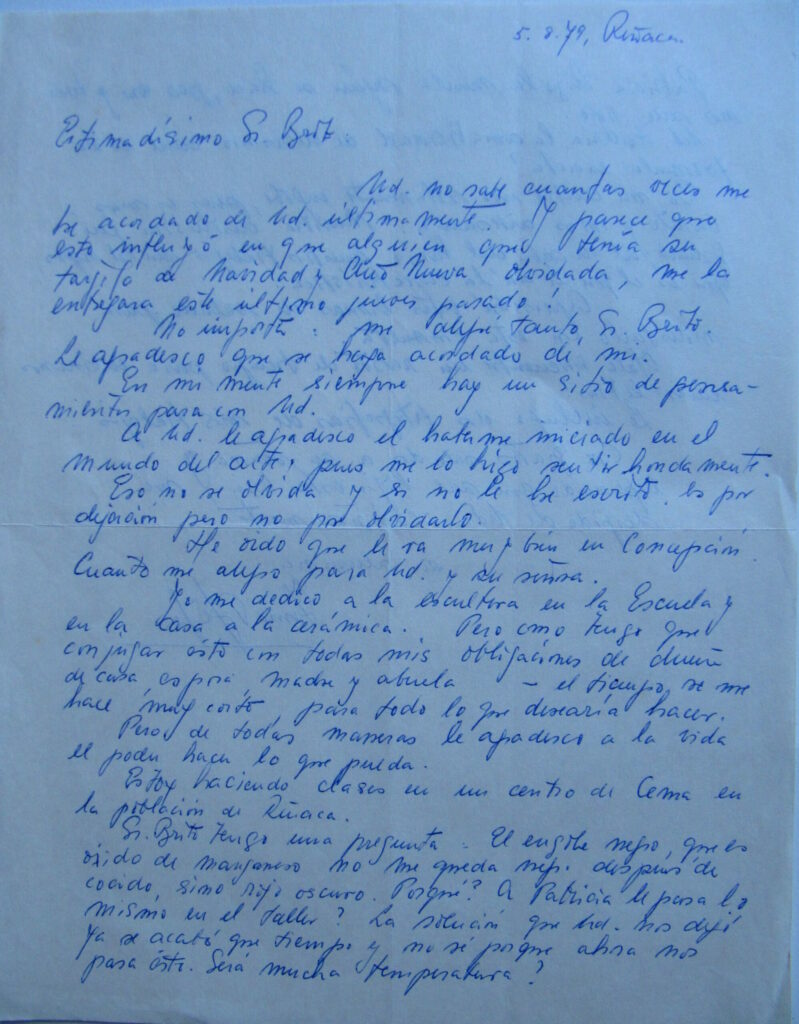 5.8.79, Reñaca.
Estimadísimo Sr. Brito
Ud. no sabe cuantas veces me
he acordado de Ud. últimamente. Y parece que
esto influyó en que alguien que tenía su
tarjeta de Navidad y Año Nuevo olvidada, me la
entregara este ultimo jueves pasado!
No importa: me alegré tanto, Sr. Brito.
Le agradesco que se haya acordado de mi.
En mi mente siempre hay un sitio de pensa-
mientos para con Ud.
A Ud. le agradesco el haberme iniciado en el
mundo del arte, pues me lo hizo sentir hondamente.
Eso no se olvida y si no le he escrito, es por
dejación pero no por olvidarlo.
He oido que le va muy bien en Concepción.
Cuanto me alegro para Ud. y su señora.
Yo me dedico a la escultura en la Escuela y
en la casa a la cerámica. Pero como tengo que
conjugar ésto con todas mis obligaciones de dueña
de casa, esposa, madre y abuela — el tiempo se me
hace muy corto para todo lo que desearía hacer.
Pero de todas maneras le agradesco a la vida
el poder hacer lo que pueda.
Estoy haciendo clases en un centro de Cema en
la población de Reñaca.
Sr. Brito tengo una pregunta. El engobe negro, que es
óxido de manganeso no me queda negro después de
cocido, sino rojo oscuro. Porqué? A Patricia le pasa lo
mismo en el taller? La solución que Ud. nos dejó
ya se acabó que tiempo y no sé porque ahora nos
pasa ésto. Será mucha temperatura?